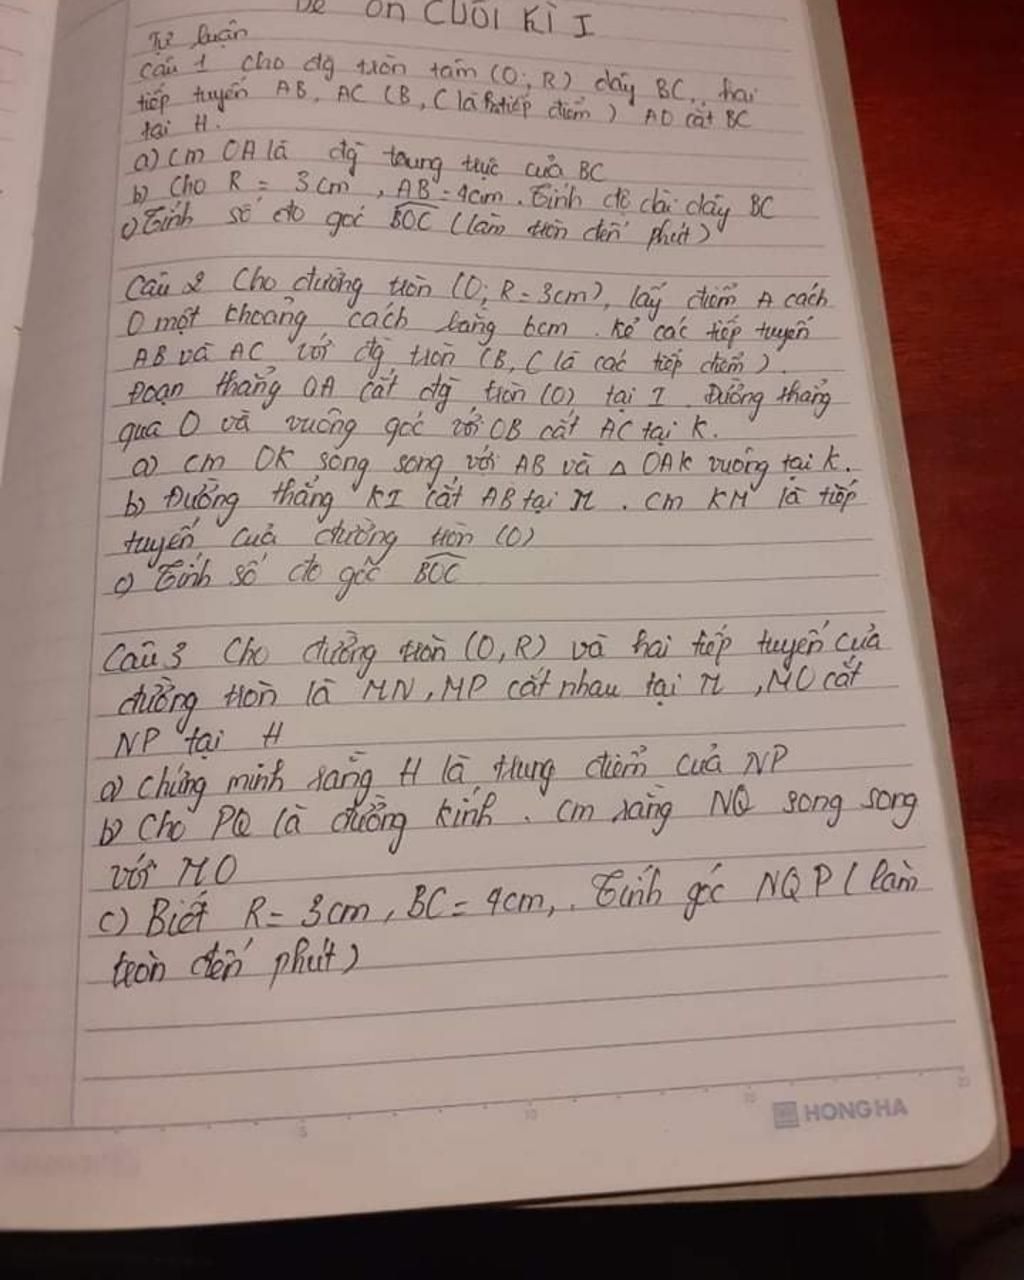 ÔN CUỐI KÌ I
Tự luận
Câu 1 Cho đg tròn tâm (O; R) dây BC, hai
tiếp tuyến AB, AC (B, C là tiếp điểm) AO cắt BC
tại H.
a) cm OA là đg trung trực của BC
b) Cho R = 3cm, AB = 4cm. Tính độ dài dây BC
c) Tính số đo góc BOC (làm tròn đến phút)
Câu 2 Cho đường tròn (O; R = 3cm), lấy điểm A cách
O một khoảng cách bằng 6cm. Kẻ các tiếp tuyến
AB và AC với đg tròn (B, C là các tiếp điểm).
Đoạn thẳng OA cắt đg tròn (O) tại I. Đường thẳng
qua O và vuông góc với OB cắt AC tại K.
a) cm OK song song với AB và △ OAK vuông tại K.
b) Đường thẳng KI cắt AB tại M. cm KM là tiếp
tuyến của đường tròn (O)
c) Tính số đo góc BOC
Câu 3 Cho đường tròn (O, R) và hai tiếp tuyến của
đường tròn là MN, MP cắt nhau tại M, MO cắt
NP tại H
a) Chứng minh rằng H là trung điểm của NP
b) Cho PQ là đường kính. cm rằng NQ song song
với MO
c) Biết R = 3cm, BC = 4cm,. Tính góc NQP (làm
tròn đến phút)
5 10 15 20
HONG HA